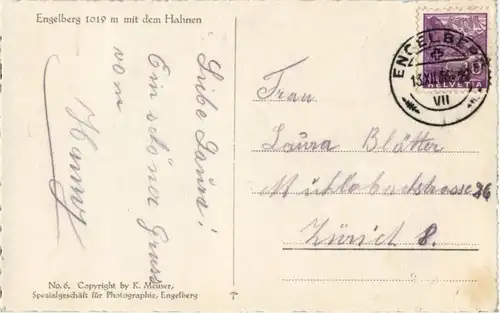 Engelberg 1019 m mit dem Hahnen
Liebe Laura!
Ein schöner Gruss
von
Hanny
No. 6. Copyright by K. Meuser,
Spezialgeschäft für Photographie, Engelberg
Frau
Laura Blätter
Mühlebachstrasse 26
Zürich 8.
ENGELBERG
VII
HELVETIA